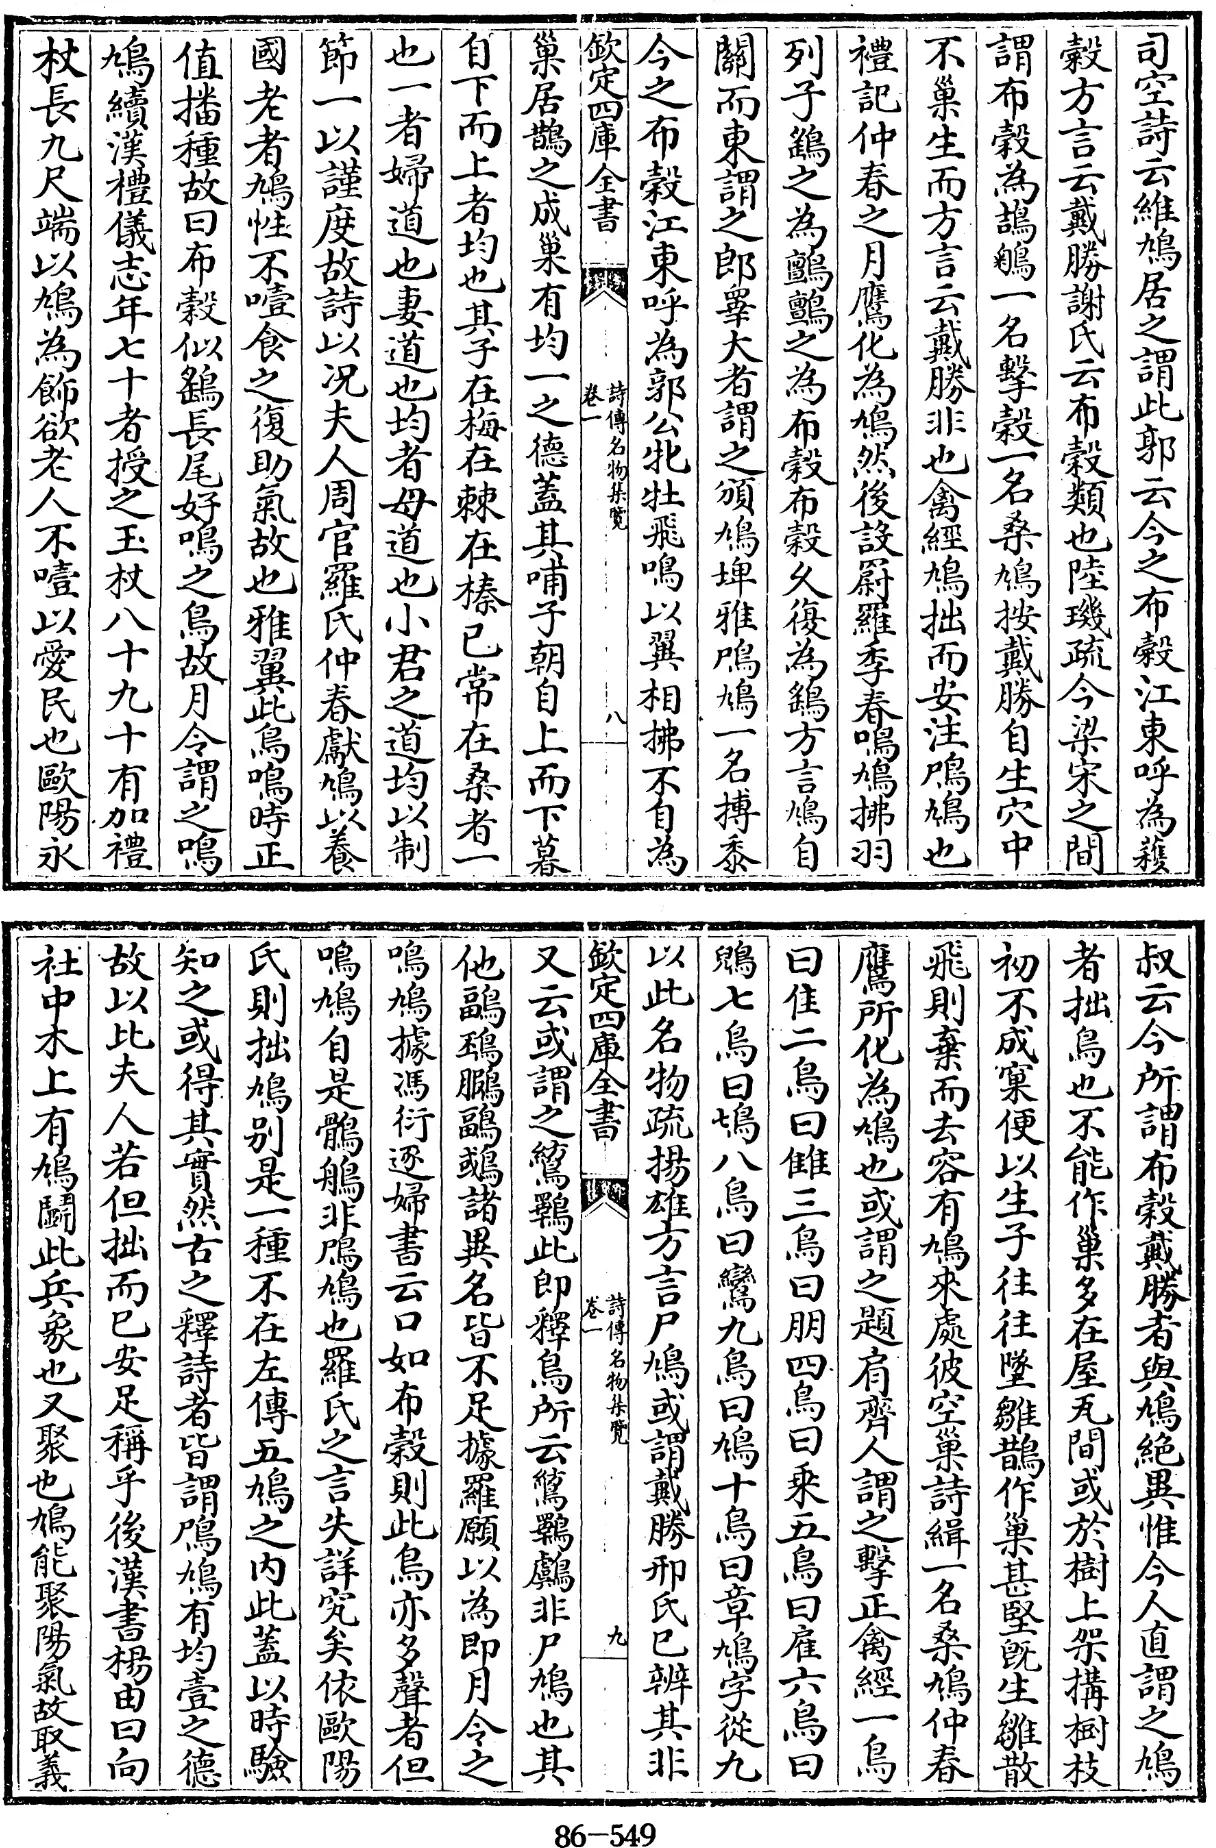 司空詩云維鳩居之謂此郭云今之布穀江東呼為穫
穀方言云戴勝謝氏云布穀類也陸璣疏今梁宋之間
謂布穀為鴶鵴一名擊穀一名桑鳩按戴勝自生穴中
不巢生而方言云戴勝非也禽經鳩拙而安注鳲鳩也
禮記仲春之月鷹化為鳩然後設罻羅季春鳴鳩拂羽
列子鷂之為鸇鸇之為布穀布穀久復為鷂方言鳩自
關而東謂之郎睪大者謂之頒鳩埤雅鳲鳩一名搏黍
今之布穀江東呼為郭公牝牡飛鳴以翼相拂不自為
欽定四庫全書
詩傳名物集覽
卷一
八
巢居鵲之成巢有均一之德蓋其哺子朝自上而下暮
自下而上者均也其子在梅在棘在榛已常在桑者一
也一者婦道也妻道也均者母道也小君之道均以制
節一以謹度故詩以况夫人周官羅氏仲春獻鳩以養
國老者鳩性不噎食之復助氣故也雅翼此鳥鳴時正
值播種故曰布穀似鷂長尾好鳴之鳥故月令謂之鳴
鳩續漢禮儀志年七十者授之玉杖八十九十有加禮
杖長九尺端以鳩為飾欲老人不噎以愛民也歐陽永
叔云今所謂布穀戴勝者與鳩絶異惟今人直謂之鳩
者拙鳥也不能作巢多在屋瓦間或於樹上架搆樹枝
初不成窠便以生子往往墜雛鵲作巢甚堅既生雛散
飛則棄而去容有鳩來處彼空巢詩緝一名桑鳩仲春
鷹所化為鳩也或謂之題肩齊人謂之擊正禽經一鳥
曰隹二鳥曰雔三鳥曰朋四鳥曰乘五鳥曰雇六鳥曰
鶂七鳥曰鳵八鳥曰鸞九鳥曰鳩十鳥曰章鳩字從九
以此名物疏揚雄方言尸鳩或謂戴勝邢氏已辨其非
欽定四庫全書
詩傳名物集覽
卷一
九
又云或謂之鶭鸅此即釋鳥所云鶭鸅鸆非尸鳩也其
他鶝鶔鵩鶝鶭諸異名皆不足據羅願以為即月令之
鳴鳩據馮衍逐婦書云口如布穀則此鳥亦多聲者但
鳴鳩自是鶻鵃非鳲鳩也羅氏之言失詳究矣依歐陽
氏則拙鳩别是一種不在左傳五鳩之内此蓋以時驗
知之或得其實然古之釋詩者皆謂鳲鳩有均壹之德
故以比夫人若但拙而已安足稱乎後漢書楊由曰向
社中木上有鳩鬭此兵象也又聚也鳩能聚陽氣故取義
86-549